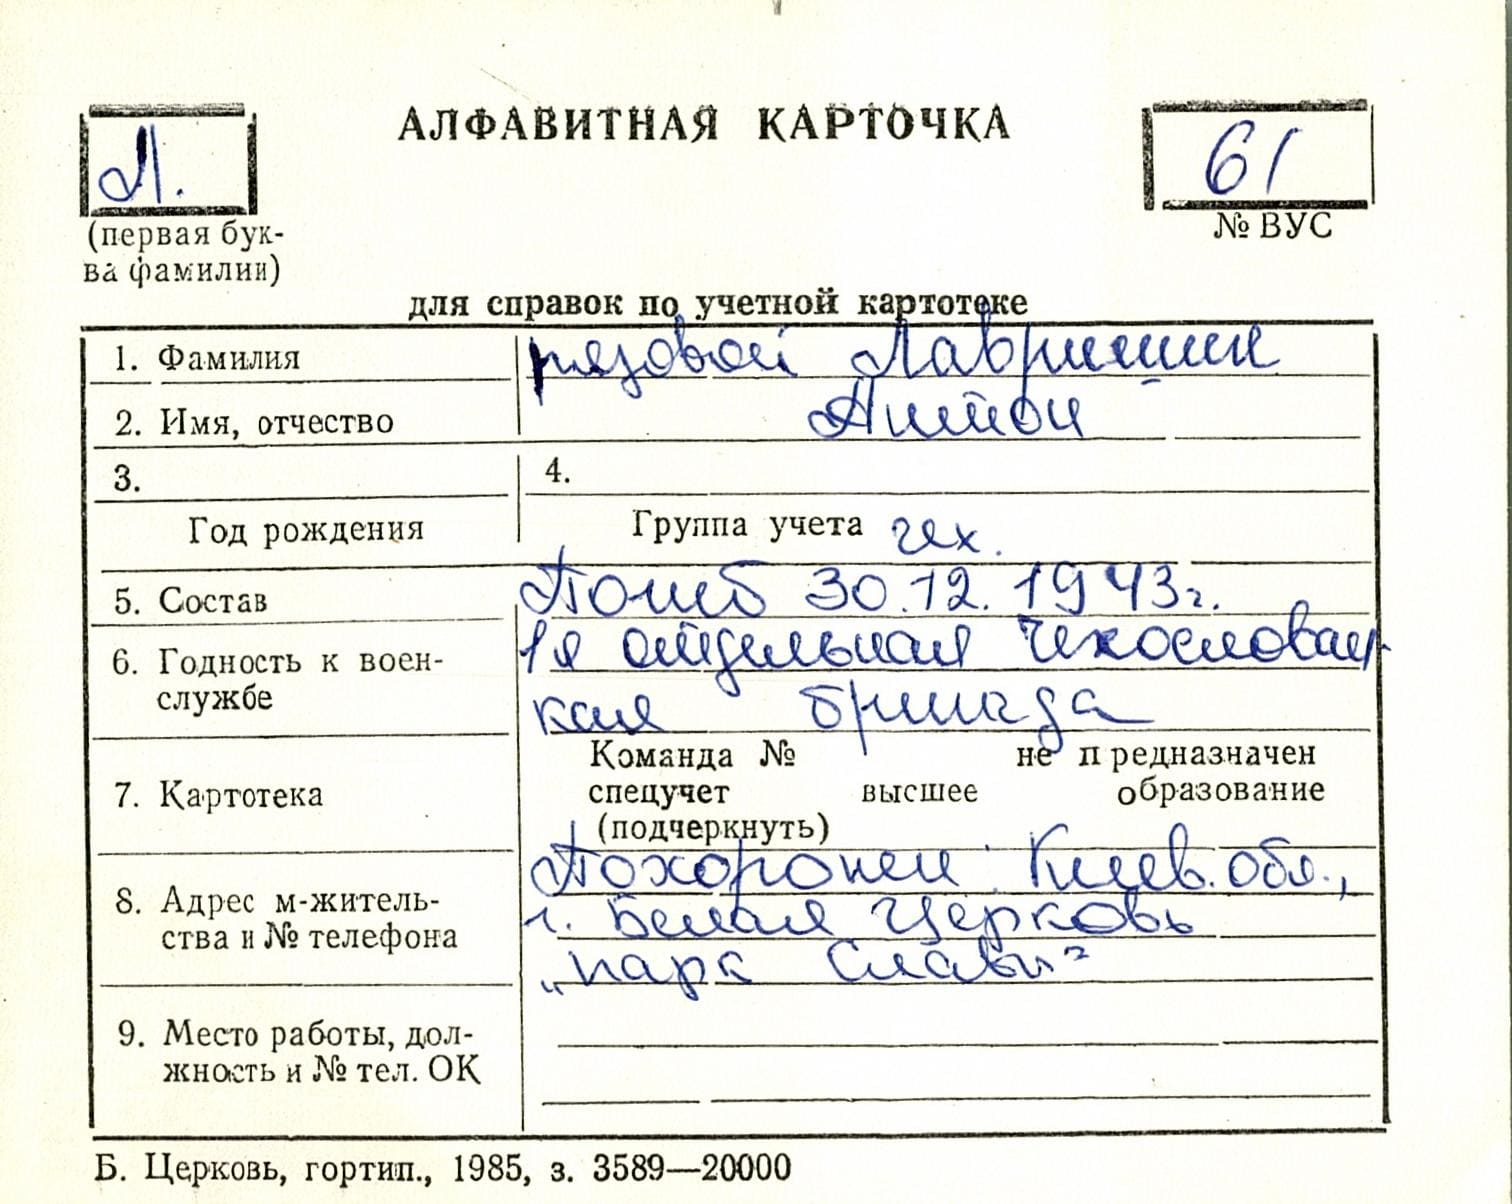 АЛФАВИТНАЯ КАРТОЧКА
Л.
61
(первая бук-
ва фамилии)
№ ВУС
для справок по учетной картотеке
1. Фамилия рядовой Лавришин
2. Имя, отчество Антон
3. 4.
Год рождения Группа учета чех.
5. Состав Погиб 30.12.1943г.
6. Годность к воен- 1я отдельная Чехословац-
службе кая бригада
Команда № не предназначен
7. Картотека спецучет высшее образование
(подчеркнуть)
Похоронен: Киев. обл.,
8. Адрес м-житель- г. Белая Церковь
ства и № телефона „парк Славы"
9. Место работы, дол-
жность и № тел. ОК
Б. Церковь, гортип., 1985, з. 3589—20000